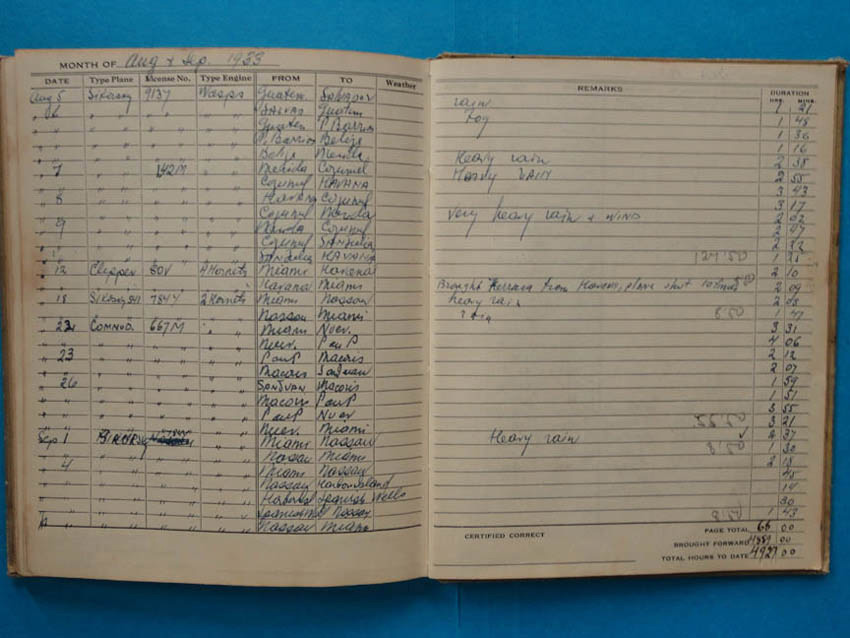 MONTH OF Aug & Sep. 1933
DATE Type Plane License No. Type Engine FROM TO Weather REMARKS DURATION
HRS. MINS.
Aug 5 Sikorsky 9137 Wasps Guatem. Salvador rain 1 21
6 " " " Salvad Guatem Fog 1 48
" " " " Guatem P. Barrios 1 36
" " " " P. Barrios Belize 1 16
" " " " Belize Merida Heavy rain 2 38
7 " 142M " Merida Cozumel Heavy rain 2 55
" " " " Cozumel HAVANA 3 43
8 " " " HAVANA Cozumel 3 17
" " " " Cozumel Merida Very heavy rain & WIND 2 02
9 " " " Merida Cozumel 2 47
" " " " Cozumel 2 22
" " " " HAVANA 127.50 1
12 Clipper 80V 4 Hornets Miami Havana 2 10
" " " " Havana Miami Brought from Havana, plane shot 2 09
18 Sikorsky S41 784Y 2 Hornets Miami Nassau heavy rain 2 08
" " " " Nassau Miami 8.50 1 47
22 Commod. 667M " Miami Nuev. 3 31
" " " " Nuev. P au P 4 06
23 " " " P au P Macoris 2 12
" " " " Macoris San Juan 2 07
26 " " " SAN JUAN Macoris 1 59
" " " " Macoris P au P 1 51
" " " " P au P Nuev 3 55
" " " " Nuev. Miami 3 21
Sep 1 " " Miami Nassau Heavy rain 2 37
" " " " Nassau Miami 8.50 1 30
4 " " " Miami Nassau 2 18
" " " " Nassau Harbor Island 45
" " " " Harbor Spanish Wells 14
" " " " Spanish Nassau 30
" " " " Nassau Miami 1 43
CERTIFIED CORRECT PAGE TOTAL 68 00
BROUGHT FORWARD 4859 00
TOTAL HOURS TO DATE 4927 00